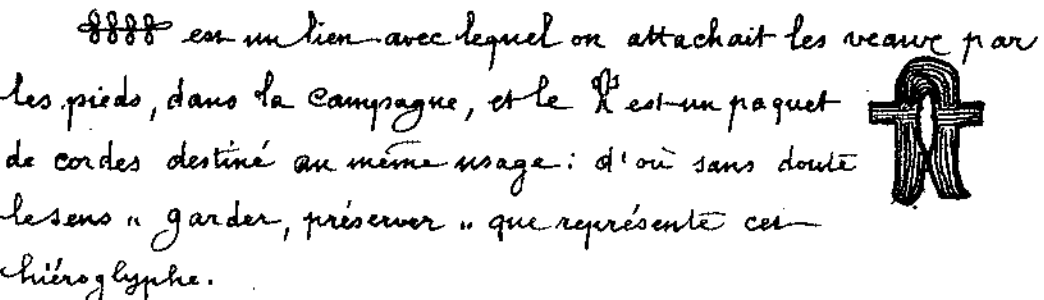 est un lien avec lequel on attachait les veaux par
les pieds, dans la campagne, et le est un paquet
de cordes destiné au même usage : d'où sans doute
le sens " garder, préserver " que représente cet
hiéroglyphe.